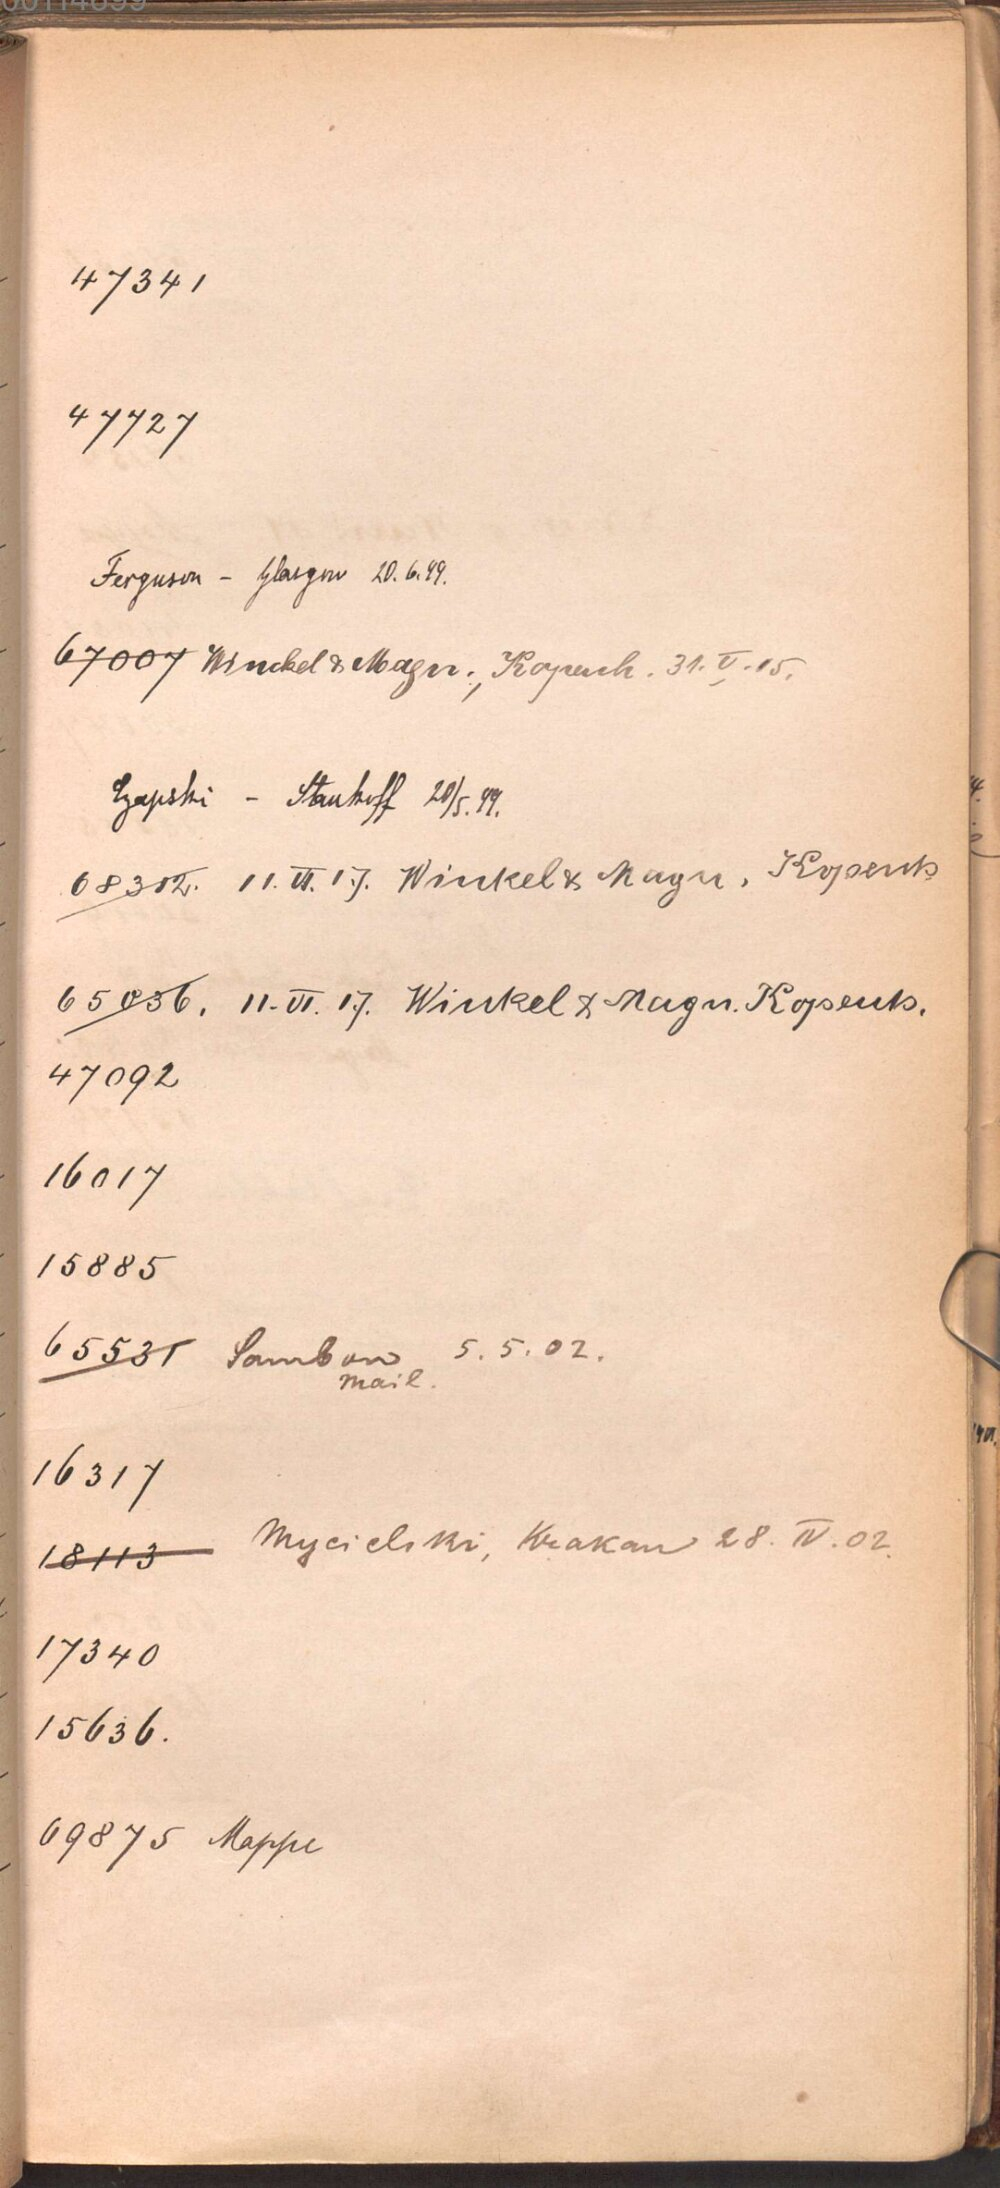 00114899
47341
47727
Ferguson - Glasgow 20.6.99.
67007 Winckel & Magn., Kopenh. 31.V.15.
Czapski - 20/5.99.
68302. 11.VI.17. Winkel & Magn. Kopenh
65036. 11.VI.17. Winkel & Magn. Kopenh.
47092
16017
15885
65531 Sambon 5.5.02.
Mail.
16317
18113 Mycielski, Krakau 28.IV.02.
17340
15636.
69875 Mappe